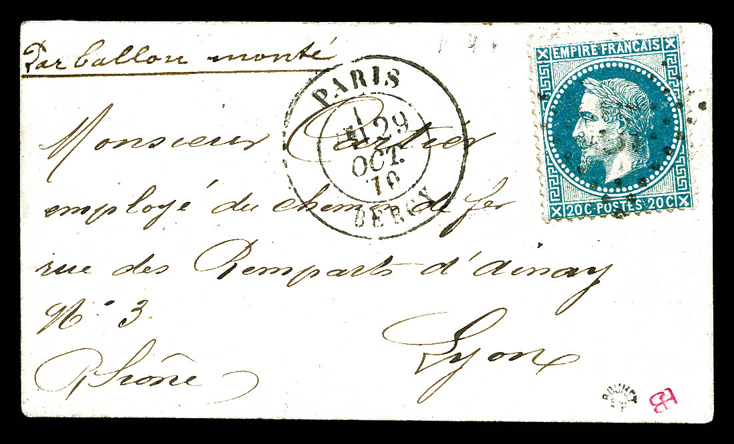 Par ballon monté
EMPIRE FRANÇAIS
20 C POSTES 20 C
PARIS
1
29
OCT.
70
BERCY
Monsieur Cartier
employé du chemin de fer
rue des Remparts d'ainay
N° 3
Lyon
Rhône